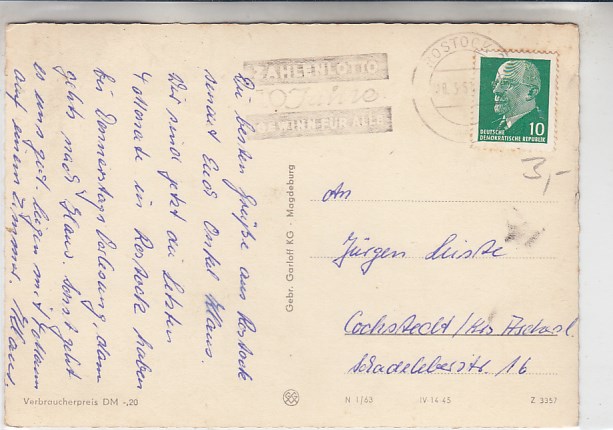 Die besten Grüße aus Rostock
sendet Euch Onkel Klaus.
Wir sind jetzt die letzten
4 Monate in Rostock haben
bis Donnerstag Vorlesung, dann
gehts nach Haus. Sonst geht
es uns gut. liegen mit
auf einem Zimmer. Klaus.
Verbraucherpreis DM -,20
Gebr. Garloff KG · Magdeburg
ZAHLENLOTTO
10 Jahre
GEWINN FÜR ALLE
ROSTOCK
10
DEUTSCHE
DEMOKRATISCHE REPUBLIK
3,-
An
Jürgen
Cochstedt/Krs Aschersl.
Schadeleberstr. 16
N 1/63 IV-14-45 Z 3357